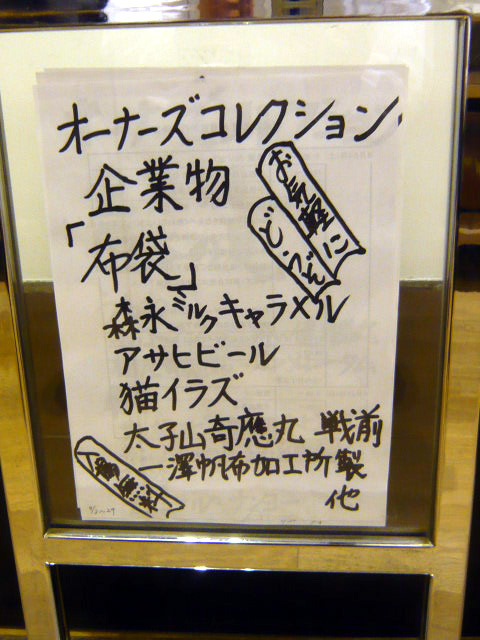 オーナーズコレクション
企業物
お気軽に
どうぞ
「布袋」
森永ミルクキャラメル
アサヒビール
猫イラズ
太子山奇應丸 戦前
一澤帆布加工所製
他